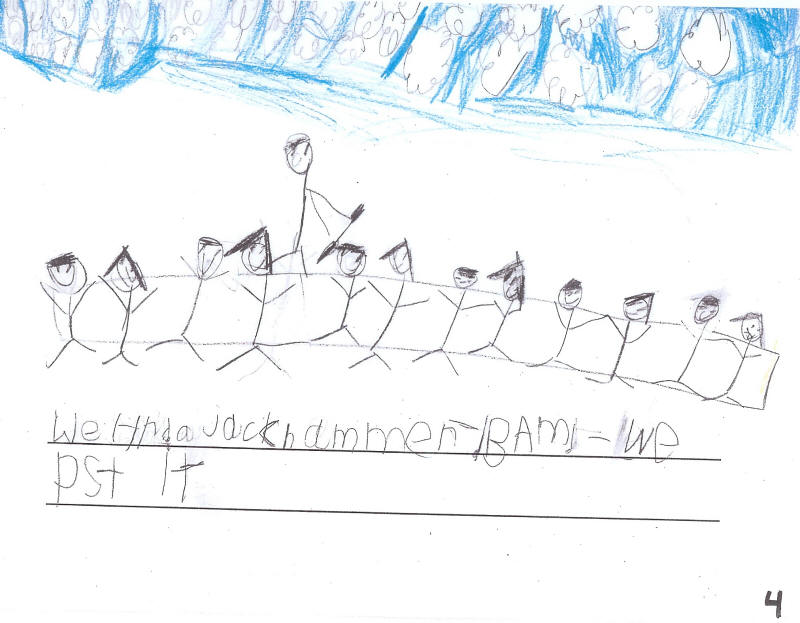 We Hrda Jackhammer-!BAM!-We
pst It
4